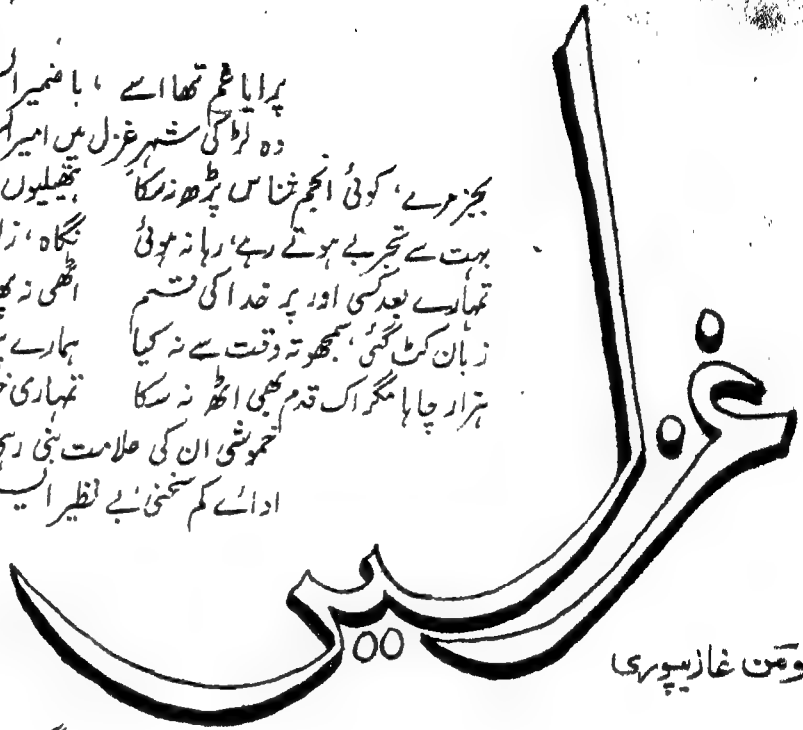 پرایا غم تھا اسے ، با ضمیر
وہ لڑکی شہرِ غزل میں امیر
بجز مرے، کوئی انجم شناس پڑھ نہ سکا ہتھیلیوں
بہت سے تجربے ہوتے رہے، رہا نہ ہوئی نگاہ،
تمہارے بعد کسی اور پر خدا کی قسم اٹھی نہ
زبان کٹ گئی، سمجھوتہ وقت سے نہ کیا ہمارے
ہزار چاہا مگر اک قدم بھی اٹھ نہ سکا تمہاری
خموشی ان کی علامت بنی
ادائے کم سخنی بے نظیر
غزلیں
غازیپوری